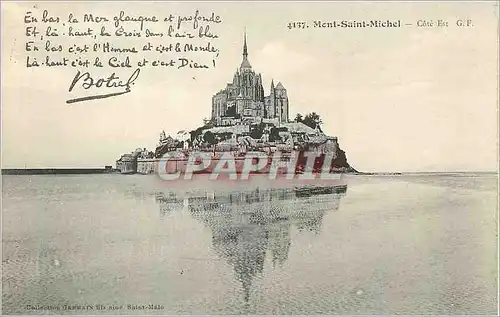 4137. Mont-Saint-Michel — Côté Est G. F.
En bas, la Mer glauque et profonde
Et, là-haut, la Croix dans l'air bleu
En bas c'est l'Homme et c'est le Monde,
Là-haut c'est le Ciel et c'est Dieu!
Botrel
CPAPHIL
Collection Germain fils aîné Saint-Malo